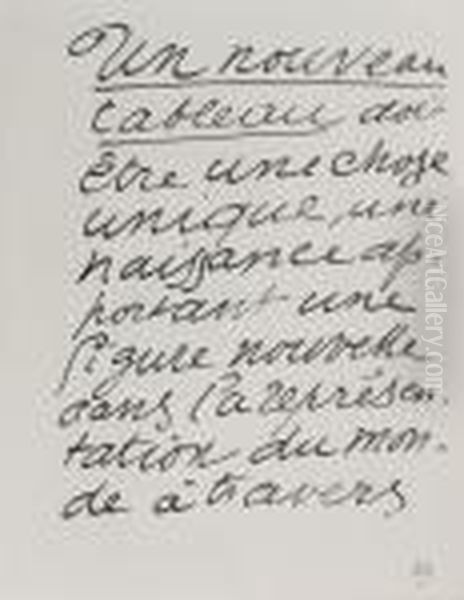 Un nouveau
tableau doit
être une chose
unique, une
naissance ap-
portant une
figure nouvelle
dans la représen-
tation du mon-
de à travers
NiceArtGallery.com